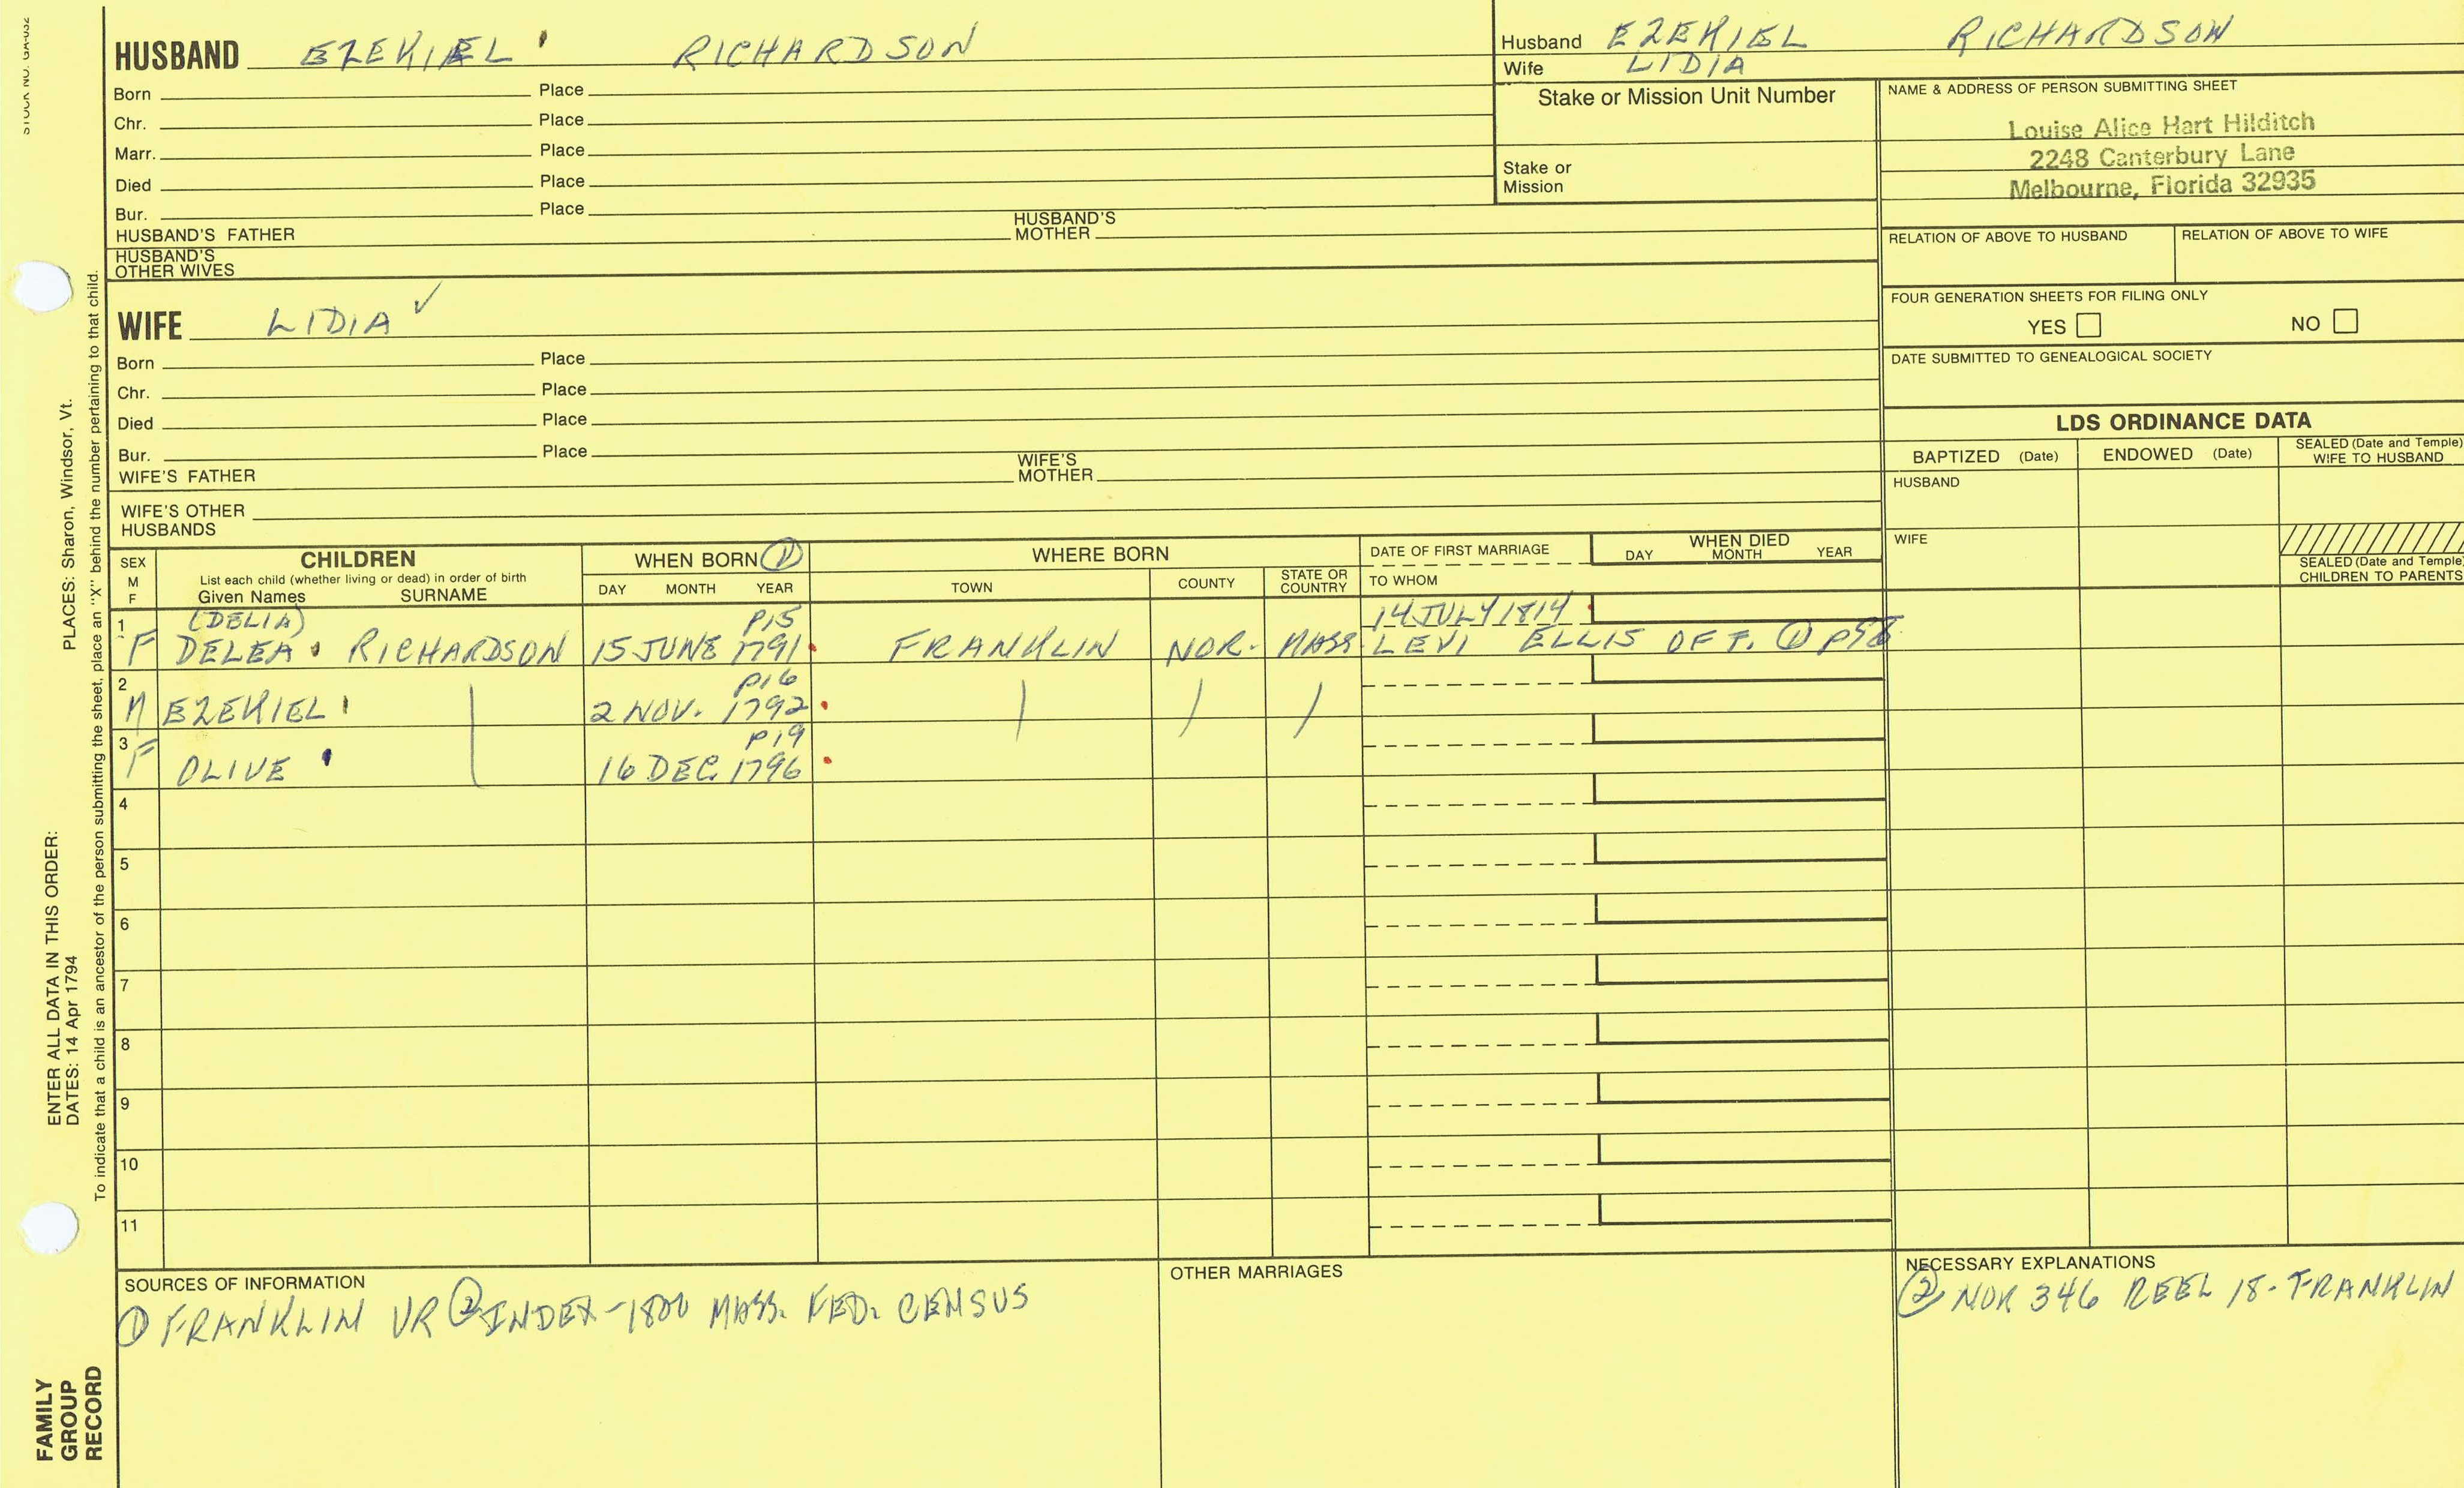 STOCK NO. GA-032
HUSBAND EZEKIEL RICHARDSON
Born Place
Chr. Place
Marr. Place
Died Place
Bur. Place
HUSBAND'S FATHER HUSBAND'S MOTHER
HUSBAND'S OTHER WIVES
Husband EZEKIEL RICHARDSON
Wife LIDIA
Stake or Mission Unit Number
Stake or
Mission
NAME & ADDRESS OF PERSON SUBMITTING SHEET
Louise Alice Hart Hilditch
2248 Canterbury Lane
Melbourne, Florida 32935
RELATION OF ABOVE TO HUSBAND RELATION OF ABOVE TO WIFE
FOUR GENERATION SHEETS FOR FILING ONLY
YES NO
DATE SUBMITTED TO GENEALOGICAL SOCIETY
WIFE LIDIA ✓
Born Place
Chr. Place
Died Place
Bur. Place
WIFE'S FATHER WIFE'S MOTHER
WIFE'S OTHER
HUSBANDS
LDS ORDINANCE DATA
BAPTIZED (Date) ENDOWED (Date) SEALED (Date and Temple) WIFE TO HUSBAND
HUSBAND
WIFE
SEALED (Date and Temple)
CHILDREN TO PARENTS
SEX M F CHILDREN WHEN BORN ① WHERE BORN DATE OF FIRST MARRIAGE WHEN DIED
List each child (whether living or dead) in order of birth
Given Names SURNAME DAY MONTH YEAR TOWN COUNTY STATE OR COUNTRY TO WHOM DAY MONTH YEAR
1 (DELIA) P15 14 JULY 1814
F DELEA RICHARDSON 15 JUNE 1791 FRANKLIN NOR. MASS. LEVI ELLIS OF F. ① P58
2 P16
M EZEKIEL 2 NOV. 1792
3 P19
F OLIVE 16 DEC. 1796
4
5
6
7
8
9
10
11
SOURCES OF INFORMATION
① FRANKLIN VR ② INDEX-1800 MASS. FED. CENSUS
OTHER MARRIAGES
NECESSARY EXPLANATIONS
② NOR 346 REEL 18-FRANKLIN
ENTER ALL DATA IN THIS ORDER:
DATES: 14 Apr 1794 PLACES: Sharon, Windsor, Vt.
To indicate that a child is an ancestor of the person submitting the sheet, place an "X" behind the number pertaining to that child.
FAMILY
GROUP
RECORD